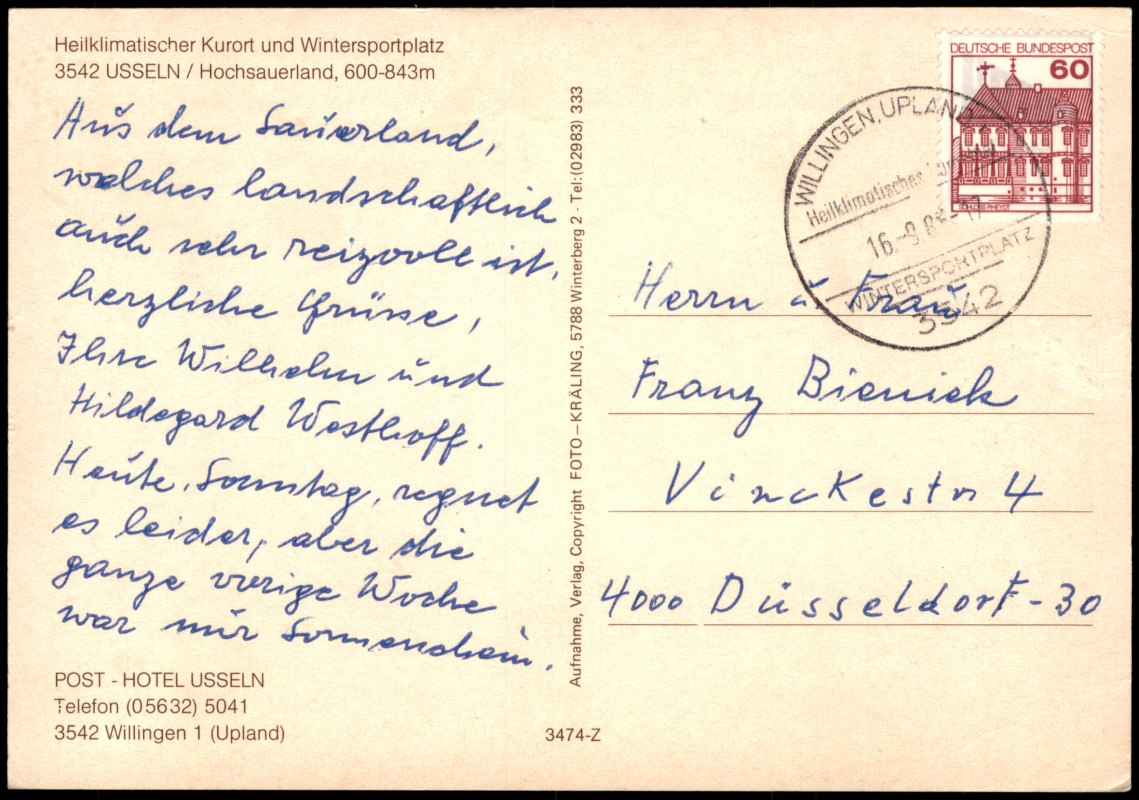 Heilklimatischer Kurort und Wintersportplatz
3542 USSELN / Hochsauerland, 600-843m
Aus dem Sauerland,
welches landschaftlich
auch sehr reizvoll ist,
herzliche Grüsse,
Ihre Wilhelm und
Hildegard Westhoff.
Heute, Sonntag, regnet
es leider, aber die
ganze vorige Woche
war nur Sonnenschein.
POST - HOTEL USSELN
Telefon (05632) 5041
3542 Willingen 1 (Upland)
3474-Z
Aufnahme, Verlag, Copyright FOTO – KRÄLING, 5788 Winterberg 2 - Tel: (02983) 333
DEUTSCHE BUNDESPOST
60
SCHLOSS RHEYDT
WILLINGEN, UPLAND
Heilklimatisches
16.-9.8
WINTERSPORTPLATZ
3542
Herrn u. Frau
Franz Bieniek
Vinckestr 4
4000 Düsseldorf - 30